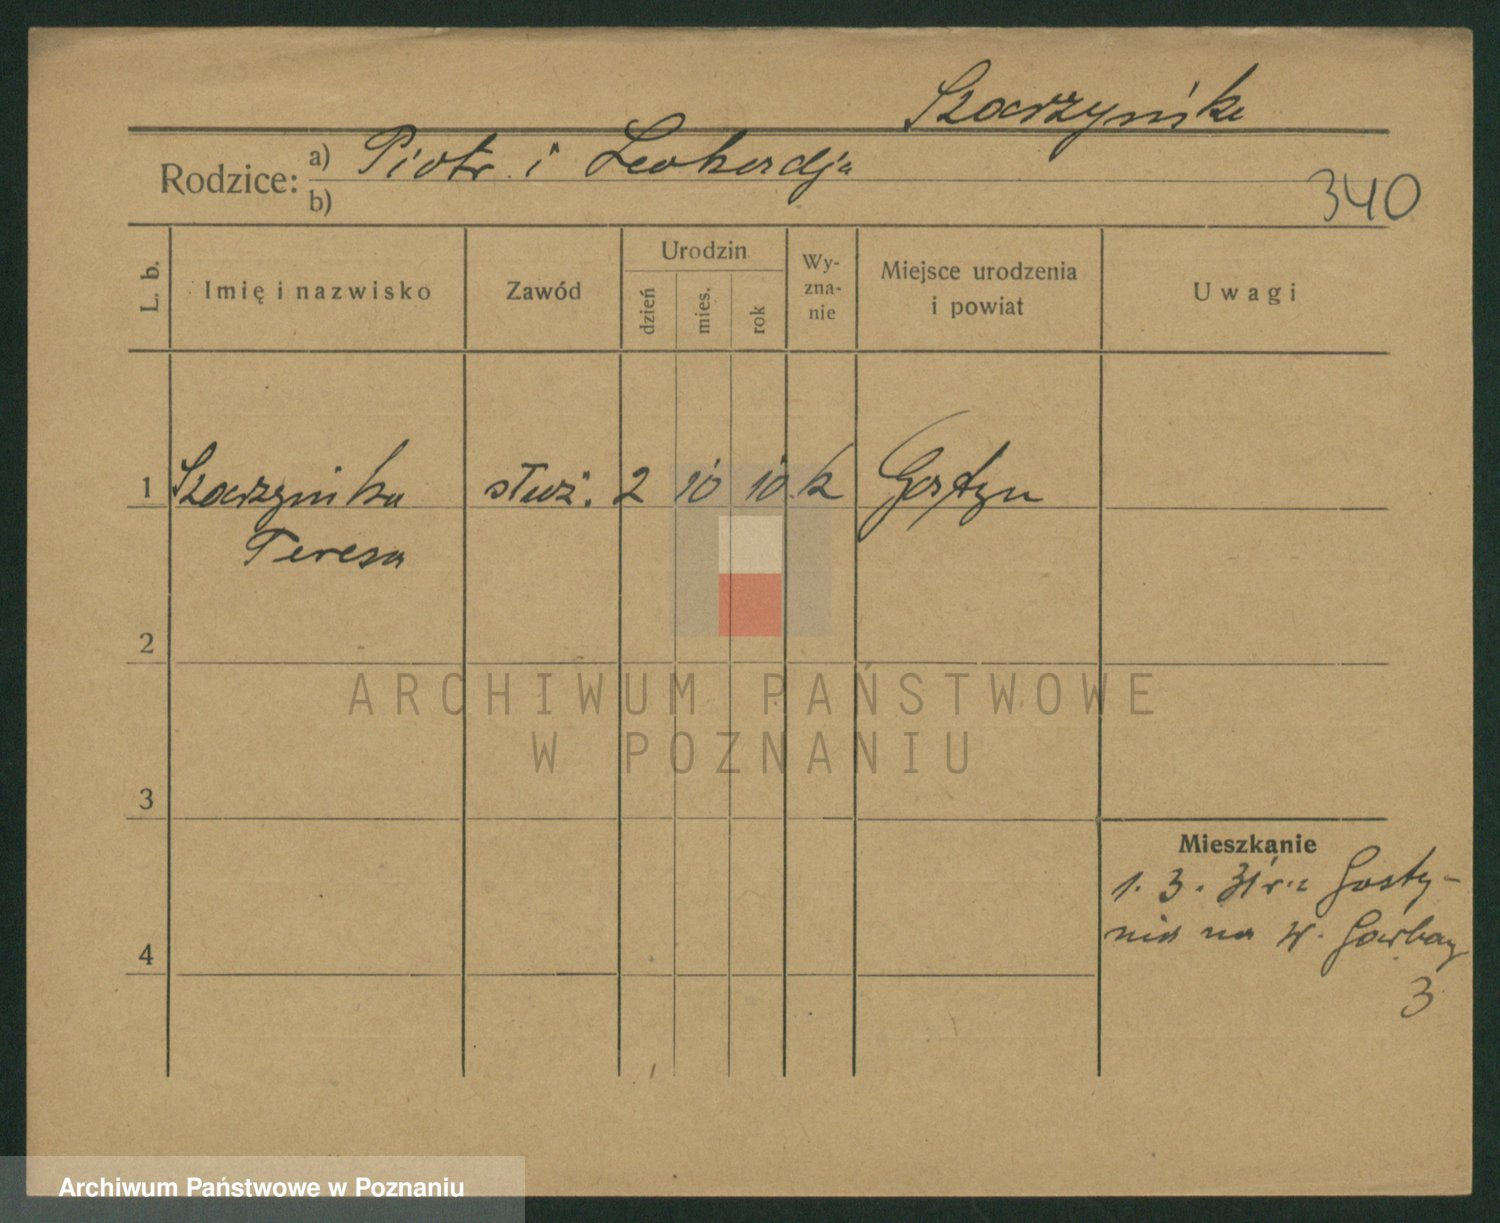 Szarzyńska
Rodzice: a) Piotr i Leokardja
b)
340
L. b.
Imię i nazwisko
Zawód
Urodzin
dzień
mies.
rok
Wy-
zna-
nie
Miejsce urodzenia
i powiat
Uwagi
1 Szarzyńska służ. 2 10 10 k Gostyn
Teresa
2
3
4
Mieszkanie
1. 3. 31 r. z Gosty-
nia na W. Garbary
3
ARCHIWUM PAŃSTWOWE
W POZNANIU
Archiwum Państwowe w Poznaniu